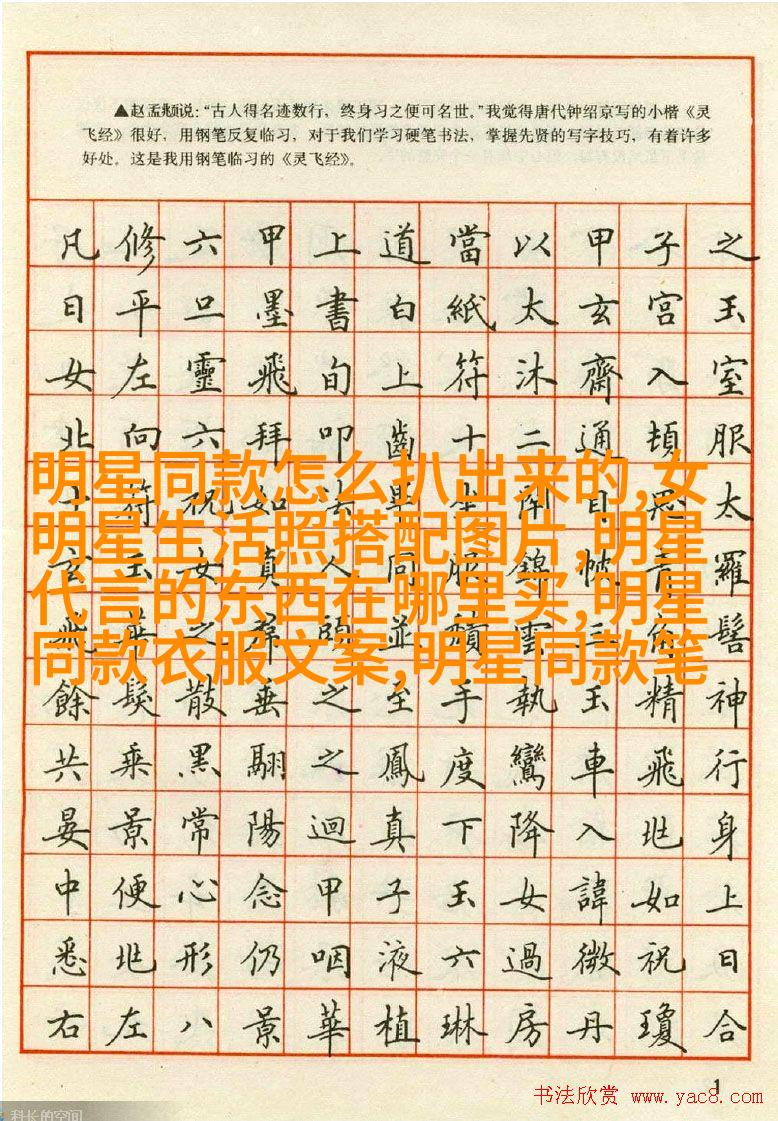 ▲赵孟頫说：“古人得名迹数行，终身习之便可名世。”我觉得唐代钟绍京写的小楷《灵
飞经》很好，用钢笔反复临习，对于我们学习硬笔书法，掌握先贤的写字技巧，有着许多
好处。这是我用钢笔临习的《灵飞经》。
凡修六甲上道當以甲子之
日平旦墨書白紙太玄宮玉
女左靈飛旬上符沐齋入室
北向六拜叩齒十二通頓服
明星同款怎么扒出来的,女
十符祝如法畢坐閉目思太
明星生活照搭配图片,明星
玄玉女真人同服錦帔青羅
代言的东西在哪里买,明星
飛華之帬頭並頹雲三角髻
同款衣服文案,明星同款笔
餘髮散垂之至手執玉精神
共乘黑翮之鳳度鸞車飛行
晏景常陽迴真下降入兆身
中便心念甲子玉女諱如上
悉兆形仍咽液六過微祝日
右左八景華植琳房丹瓊合
1
书法欣赏 www.yac8.com
科长的空间